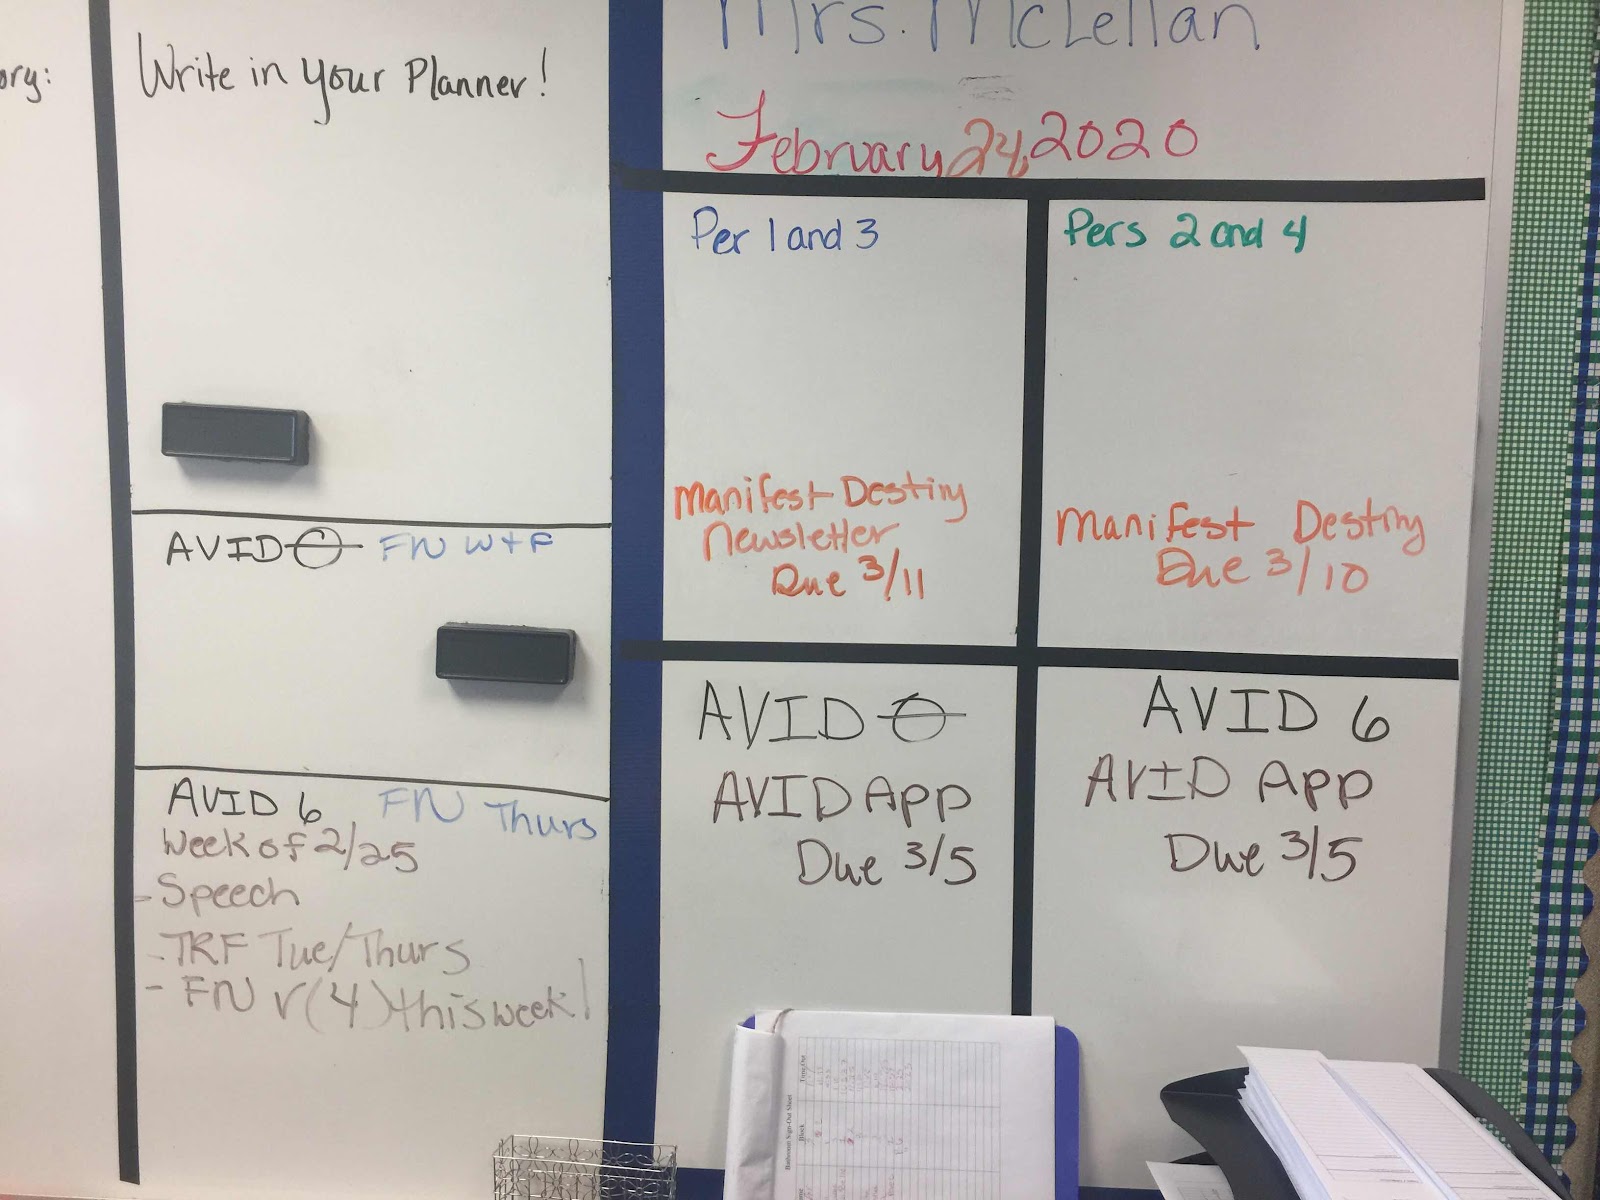 ory:
Write in your Planner!
AVID FN W+F
AVID 6 FN Thurs
Week of 2/25
- Speech
- TRF Tue/Thurs
- FN r(4) this week!
Mrs. McLellan
February 24, 2020
Per 1 and 3
Manifest Destiny
Newsletter
Due 3/11
Pers 2 and 4
Manifest Destiny
Due 3/10
AVID
AVID App
Due 3/5
AVID 6
AVID App
Due 3/5
Bathroom Sign-Out Sheet
Block
Time Out